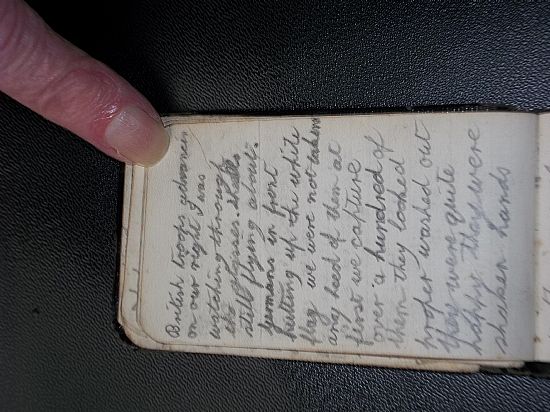 British troops advancein
on our right I was
watching through
the glasses shells
still flying about.
germans in front
putting up the white
flag we were not taken
any heed of them at
first we capture
over a hundred of
them they looked
proper washed out
they were quite
happy they were
shaken hands